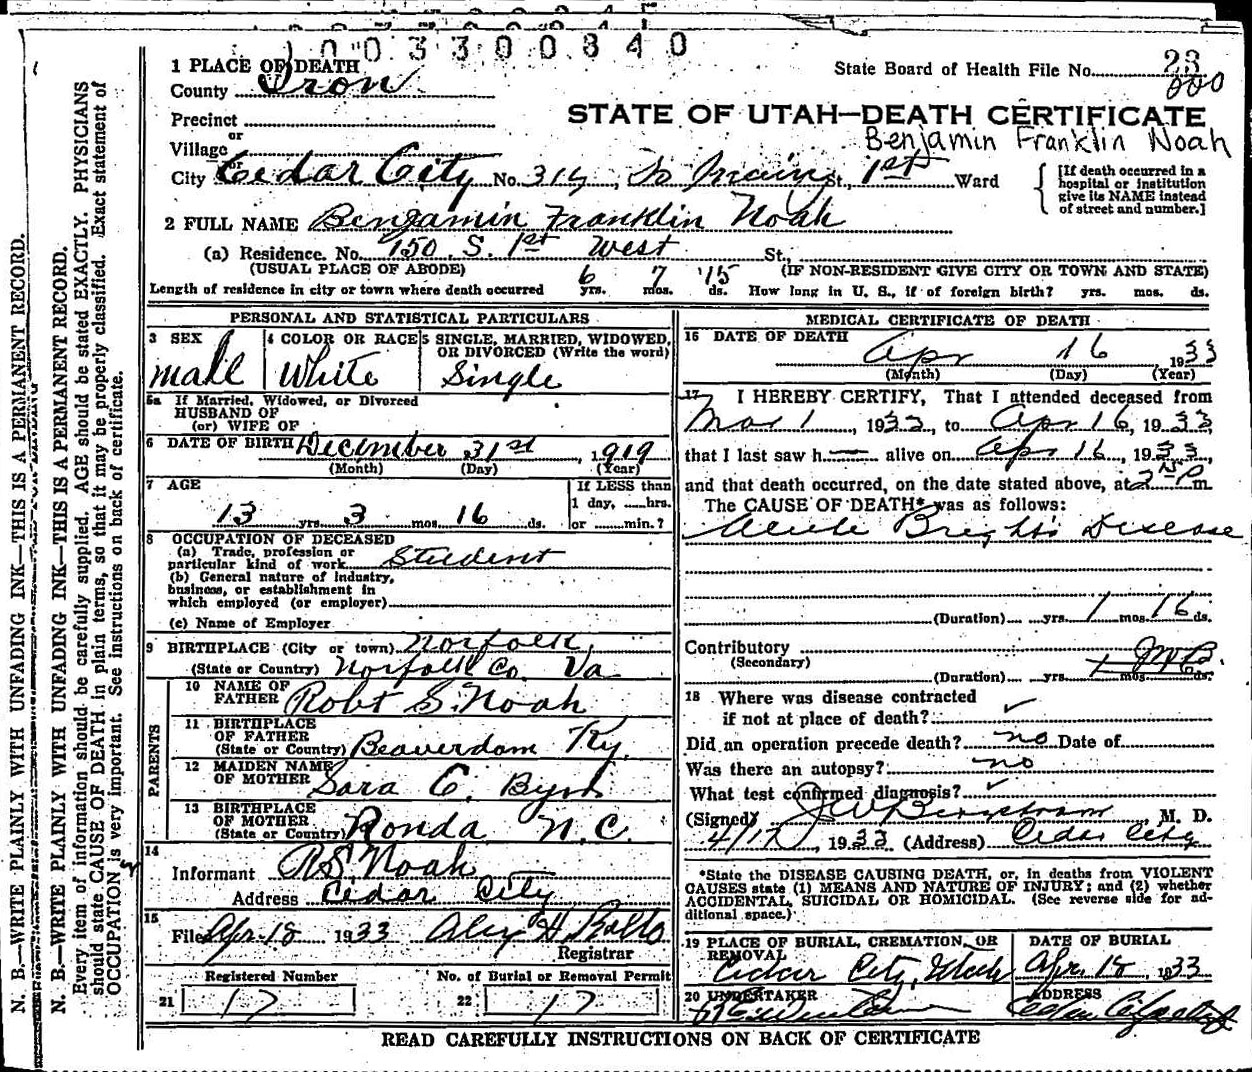 1003300840
1 PLACE OF DEATH
County Iron
State Board of Health File No. 23
000
STATE OF UTAH—DEATH CERTIFICATE
Benjamin Franklin Noah
Precinct
or
Village
or
City Cedar City No. 319, So Main St., 1st Ward
[If death occurred in a hospital or institution give its NAME instead of street and number.]
2 FULL NAME Benjamin Franklin Noah
(a) Residence. No. 150 S. 1st West St.,
(USUAL PLACE OF ABODE) (IF NON-RESIDENT GIVE CITY OR TOWN AND STATE)
Length of residence in city or town where death occurred 6 yrs. 7 mos. 15 ds. How long in U. S., if of foreign birth? yrs. mos. ds.
PERSONAL AND STATISTICAL PARTICULARS
3 SEX Male
4 COLOR OR RACE White
5 SINGLE, MARRIED, WIDOWED, OR DIVORCED (Write the word) Single
5a If Married, Widowed, or Divorced
HUSBAND OF
(or) WIFE OF
6 DATE OF BIRTH December 31st, 1919
(Month) (Day) (Year)
7 AGE 13 yrs. 3 mos. 16 ds.
If LESS than 1 day, ......hrs. or ......min.?
8 OCCUPATION OF DECEASED
(a) Trade, profession or particular kind of work Student
(b) General nature of industry, business, or establishment in which employed (or employer)
(c) Name of Employer
9 BIRTHPLACE (City or town) Norfolk,
(State or Country) Norfolk Co. Va
PARENTS
10 NAME OF FATHER Robt S. Noah
11 BIRTHPLACE OF FATHER (State or Country) Beaverdam Ky.
12 MAIDEN NAME OF MOTHER Sara C. Byrd
13 BIRTHPLACE OF MOTHER (State or Country) Ronda N.C.
14
Informant R.S. Noah
Address Cedar City
15
Filed Apr 18 1933
Registrar
Registered Number
21 17
No. of Burial or Removal Permit
22 17
MEDICAL CERTIFICATE OF DEATH
16 DATE OF DEATH Apr 16 1933
(Month) (Day) (Year)
17 I HEREBY CERTIFY, That I attended deceased from
Mar 1, 1933, to Apr 16, 1933,
that I last saw h— alive on Apr 16, 1933,
and that death occurred, on the date stated above, at 2 P m.
The CAUSE OF DEATH* was as follows:
Acute Bright's Disease
(Duration) yrs. 1 mos. 16 ds.
Contributory
(Secondary)
(Duration) yrs. mos. ds.
18 Where was disease contracted
if not at place of death? ✓
Did an operation precede death? no Date of
Was there an autopsy? no
What test confirmed diagnosis? ✓
(Signed) J W Bergstrom, M. D.
4/17, 1933 (Address) Cedar City
*State the DISEASE CAUSING DEATH, or, in deaths from VIOLENT CAUSES state (1) MEANS AND NATURE OF INJURY; and (2) whether ACCIDENTAL, SUICIDAL OR HOMICIDAL. (See reverse side for additional space.)
19 PLACE OF BURIAL, CREMATION, OR REMOVAL
Cedar City, Utah
DATE OF BURIAL
Apr. 18, 1933
20 UNDERTAKER
ADDRESS
READ CAREFULLY INSTRUCTIONS ON BACK OF CERTIFICATE
N. B.—WRITE PLAINLY WITH UNFADING INK—THIS IS A PERMANENT RECORD.
N. B.—WRITE PLAINLY WITH UNFADING INK—THIS IS A PERMANENT RECORD.
Every item of information should be carefully supplied. AGE should be stated EXACTLY. PHYSICIANS
should state CAUSE OF DEATH in plain terms, so that it may be properly classified. Exact statement of
OCCUPATION is very important. See instructions on back of certificate.